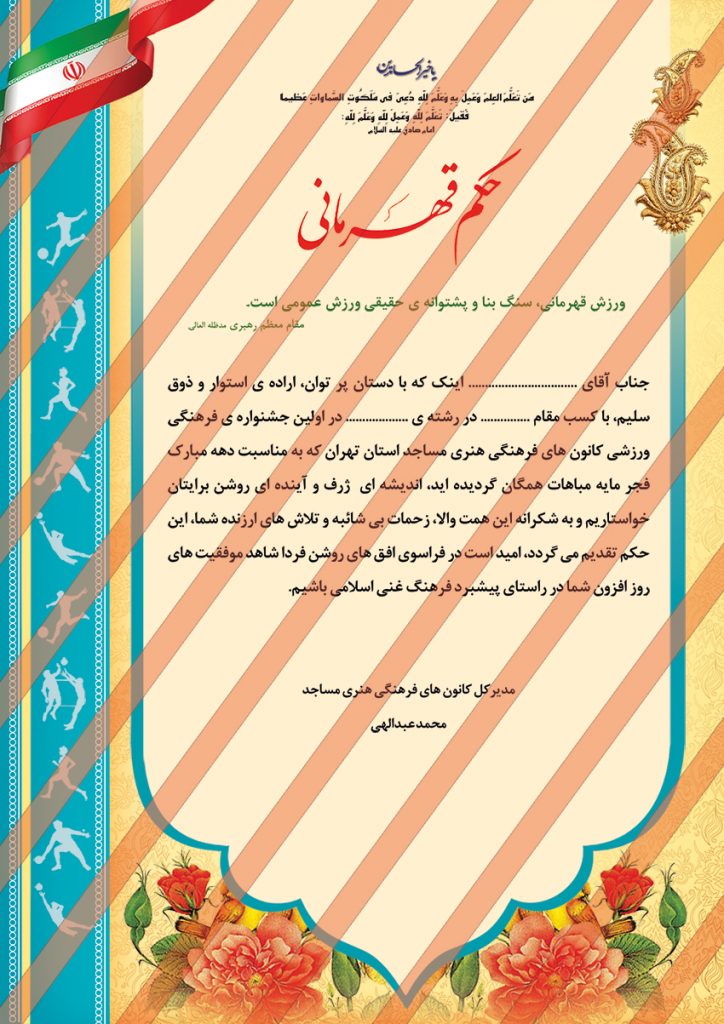 یا خیر الحامدین
مَن تَعَلَّمَ العِلمَ وَعَمِلَ بِهِ وَعَلَّمَ لِلّهِ دُعِیَ فی مَلَکُوتِ السَّماواتِ عَظیما
فَقیلَ: تَعَلَّمَ لِلّهِ وَعَمِلَ لِلّهِ وَعَلَّمَ لِلّهِ؛
امام صادق علیه السلام
حکم قهرمانی
ورزش قهرمانی، سنگ بنا و پشتوانه ی حقیقی ورزش عمومی است.
مقام معظم رهبری مدظله العالی
جناب آقای ................................ اینک که با دستان پر توان، اراده ی استوار و ذوق
سلیم، با کسب مقام .............. در رشته ی .................. در اولین جشنواره ی فرهنگی
ورزشی کانون های فرهنگی هنری مساجد استان تهران که به مناسبت دهه مبارک
فجر مایه مباهات همگان گردیده اید، اندیشه ای ژرف و آینده ای روشن برایتان
خواستاریم و به شکرانه این همت والا، زحمات بی شائبه و تلاش های ارزنده شما، این
حکم تقدیم می گردد، امید است در فراسوی افق های روشن فردا شاهد موفقیت های
روز افزون شما در راستای پیشبرد فرهنگ غنی اسلامی باشیم.
مدیرکل کانون های فرهنگی هنری مساجد
محمدعبدالهی